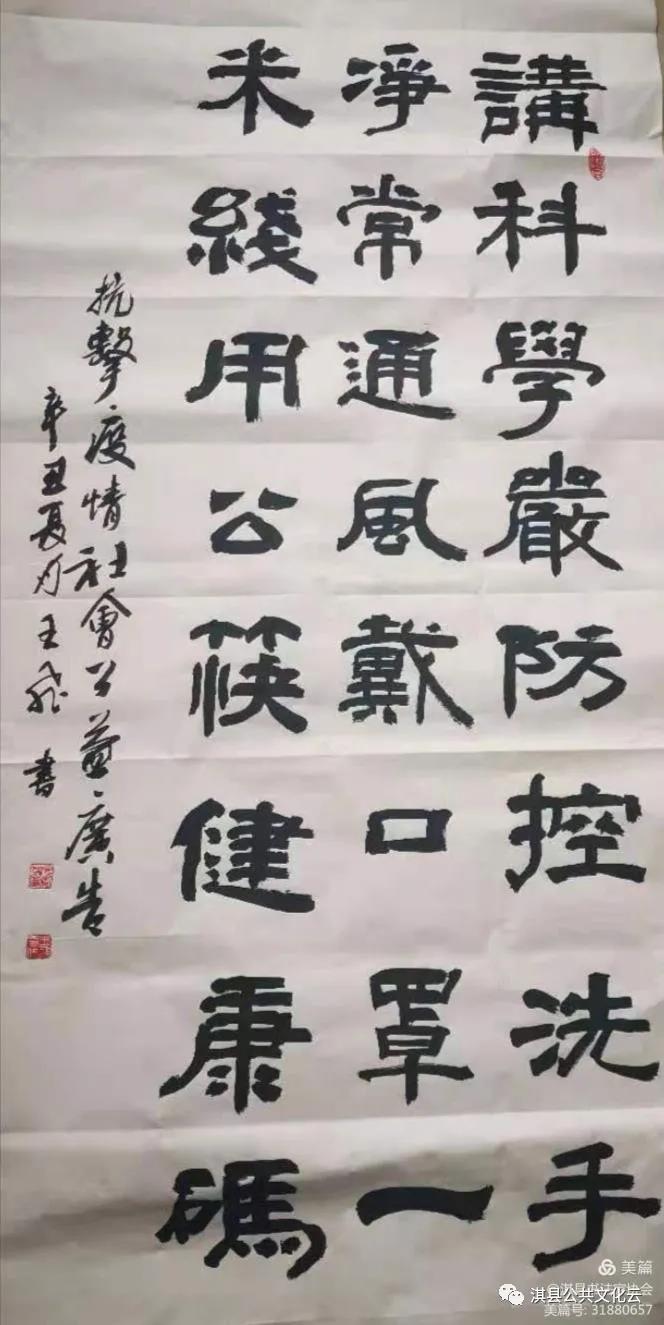 講科學嚴防控洗手
凈常通風戴口罩一
米綫用公筷健康碼
抗擊疫情社會公益廣告
辛丑夏月王 書
美篇
@淇县书法家协会
淇县公共文化云
美篇号: 31880657